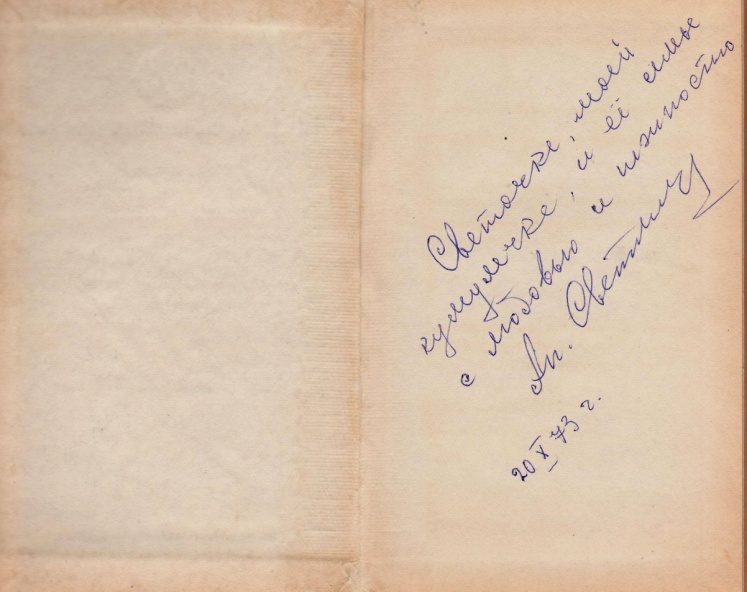 Светочке, моей
кумулечке, и её семье
с любовью и нежностью
Ан. Светлиц
20 X 73 г.